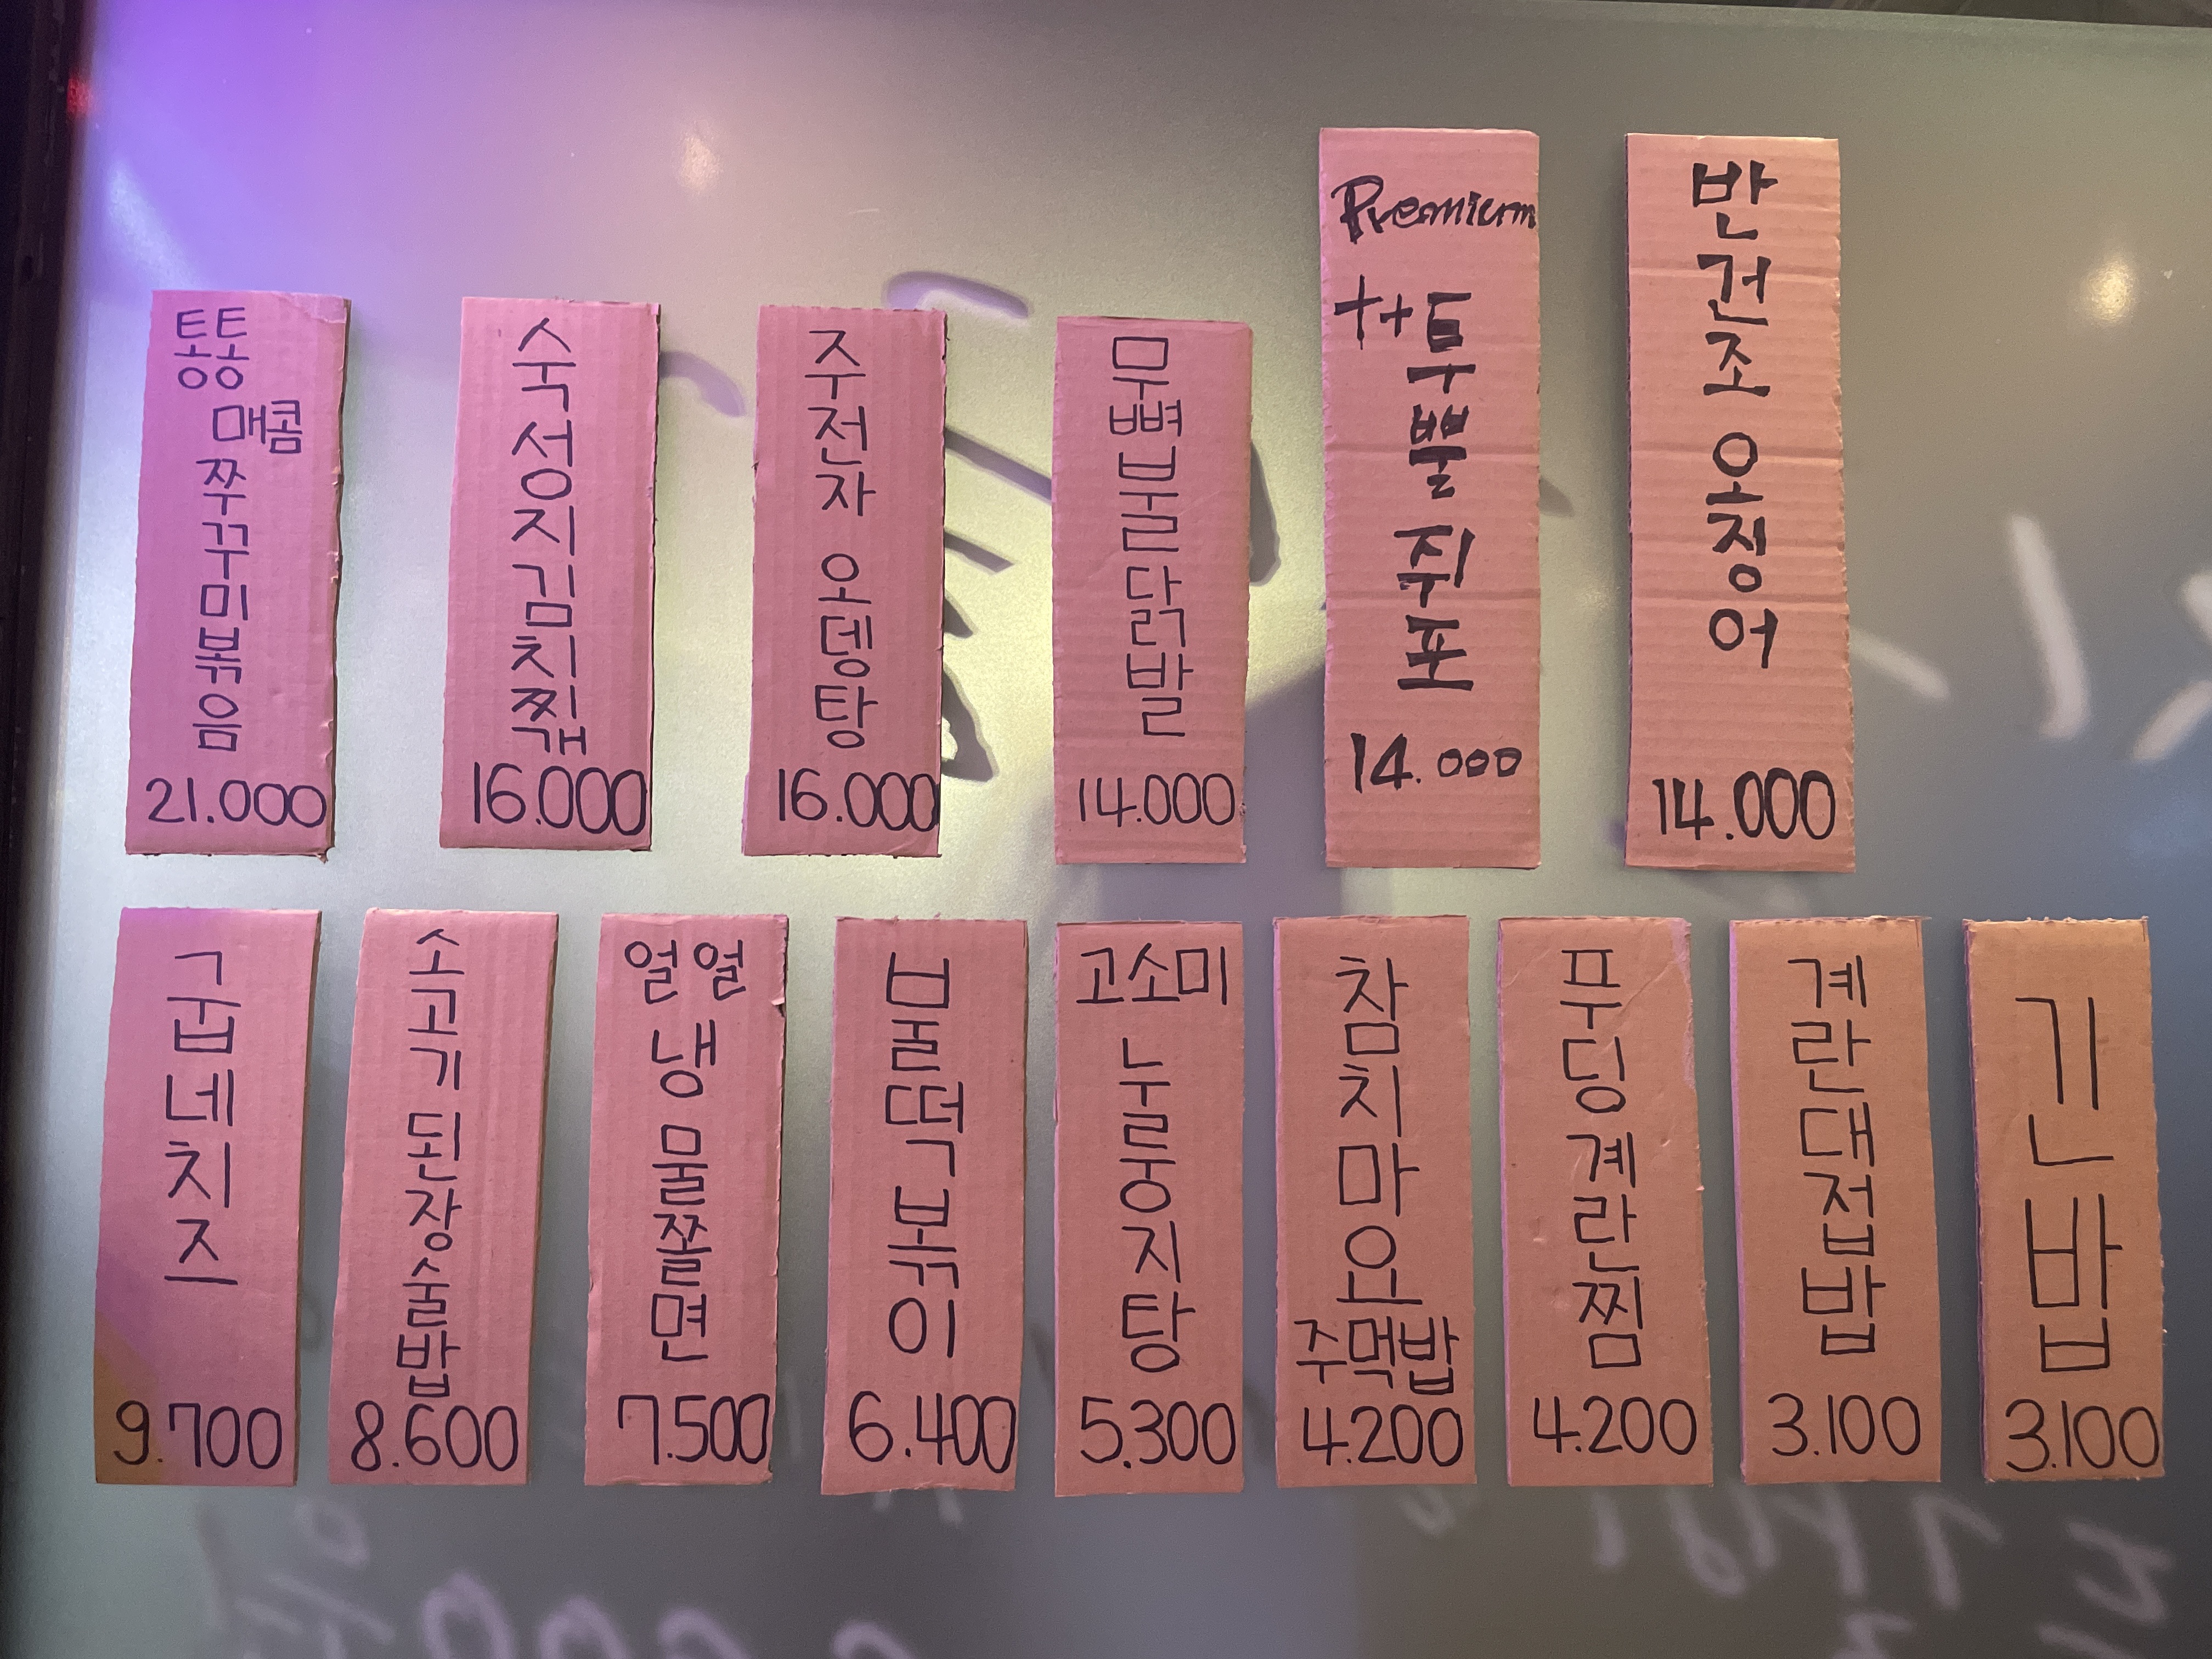 통통
매콤
쭈꾸미볶음
21.000
숙성지김치찍갭
16.000
주전자 오뎅탕
16.000
무뼈불닭발
14.000
Premium
++투뿔 쥐포
14.000
반건조 오징어
14.000
굽네치즈
9.700
소고기 된장술밥
8.600
얼얼
냉 물쫄면
7.500
불떡볶이
6.400
고소미
누룽지탕
5.300
참치마요
주먹밥
4.200
푸딩계란찜
4.200
계란대접밥
3.100
긴밥
3.100